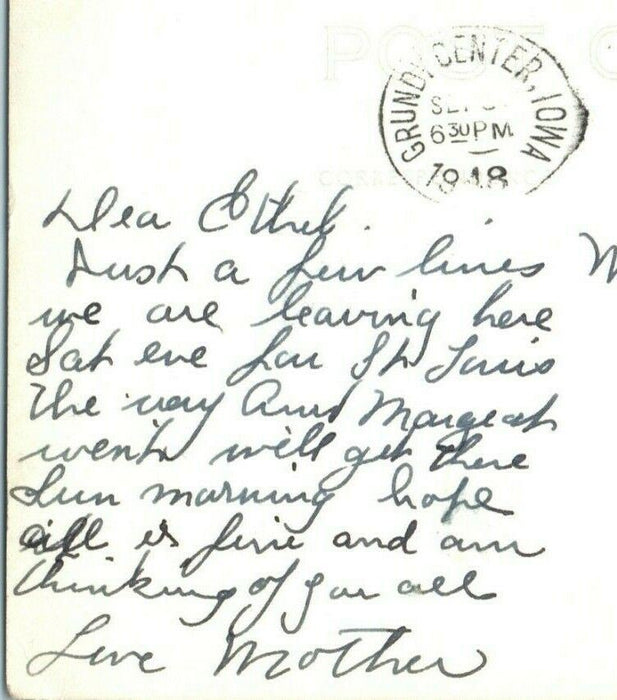 POST C
GRUNDY CENTER, IOWA
SEP
6 30 PM
1948
CORRESPONDENCE
Dea Ethel.
Just a few lines
we are leaving here
Sat eve for St Louis
The way Aunt Margeat
went will get there
Sun morning hope
all is fine and am
thinking of you all
Love Mother